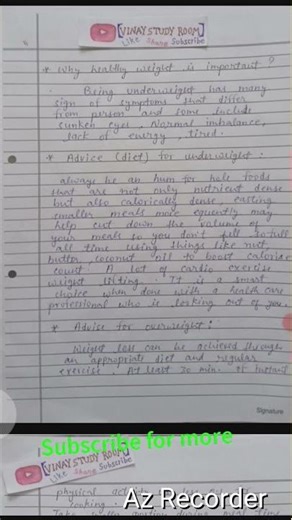 [VINAY STUDY ROOM]
Like Share Subscribe
* Why healthy weight is important?
Being underweight has many
sign of symptoms that differ
from person and some include
sunken eyes, Normal imbalance,
lack of energy, tired.
* Advice (diet) for underweight:
always be an hum for hole foods
that are not only nutrient dense
but also calorically dense, eating
smaller meals more equently may
help cut down the volume of
your meals so you don't fell so full
all time using things like nut,
butter, coconut oil to boost calorie
count. A lot of cardio exercise
weight lifting. TI is a smart
choice when done with a health care
professional who is looking out of you.
* Advise for overweight:
Weight loss can be achieved through
an appropriate diet and regular
exercise. At least 30 min. of
Signature
Subscribe for more
[VINAY STUDY ROOM]
Like Share Subscribe
physical
Az Recorder